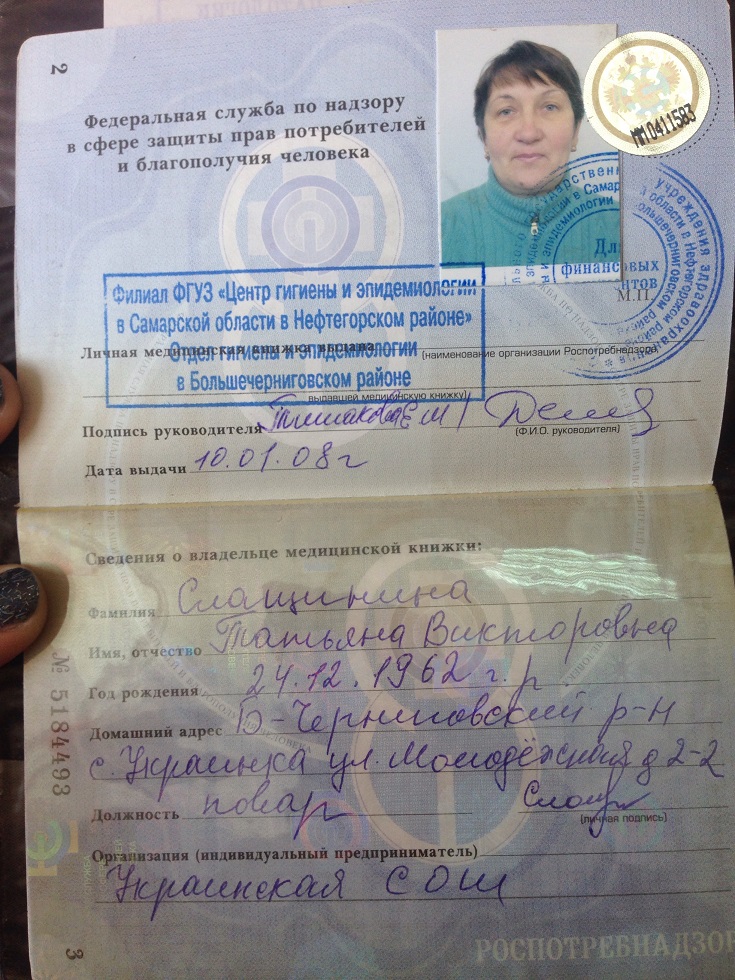 2
Федеральная служба по надзору
в сфере защиты прав потребителей
и благополучия человека
ММ0411583
Для
финансовых
М.П.
Филиал ФГУЗ «Центр гигиены и эпидемиологии
в Самарской области в Нефтегорском районе»
Отдел гигиены и эпидемиологии
в Большечерниговском районе
Личная медицинская книжка выдана
(наименование организации Роспотребнадзора,
выдавшей медицинскую книжку)
Подпись руководителя
(Ф.И.О. руководителя)
Дата выдачи 10.01.08г
Сведения о владельце медицинской книжки:
Фамилия Слащинина
Имя, отчество Татьяна Викторовна
Год рождения 24.12.1962 г.р.
Домашний адрес Б-Черниговский р-н
с. Украинка ул. Молодёжная д 2-2
Должность повар
(личная подпись)
Организация (индивидуальный предприниматель)
Украинская СОШ
№ 5184493
3
РОСПОТРЕБНАДЗОР